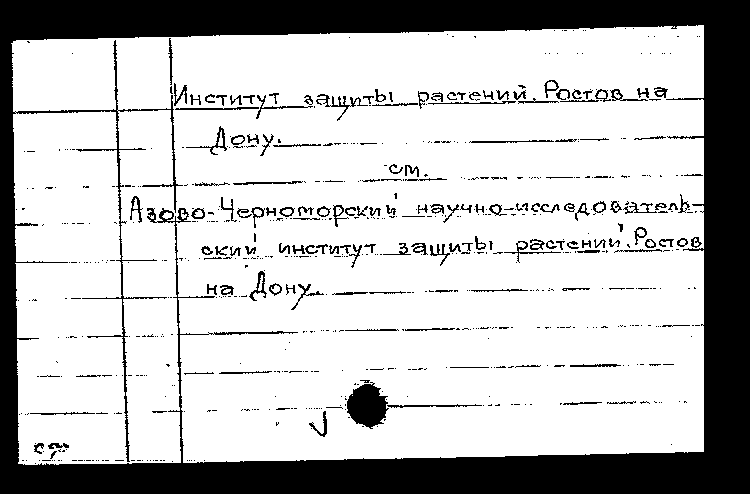 Институт защиты растений. Ростов на
Дону.
см.
Азово-Черноморский научно-исследователь-
ский институт защиты растений. Ростов
на Дону.